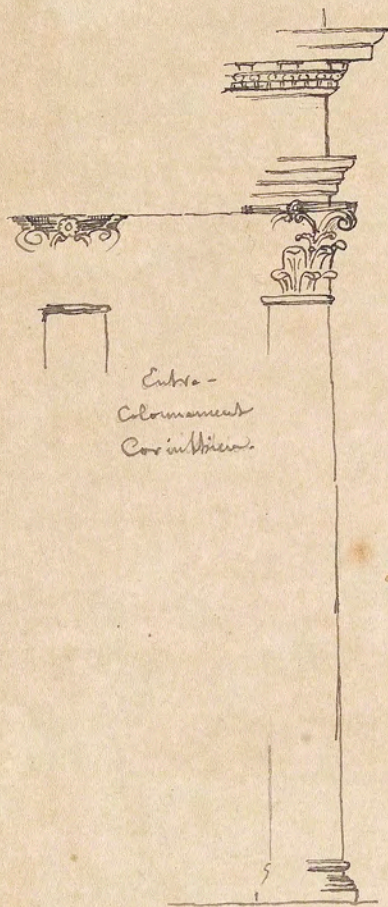 Entre-
Colonnement
Corinthien.